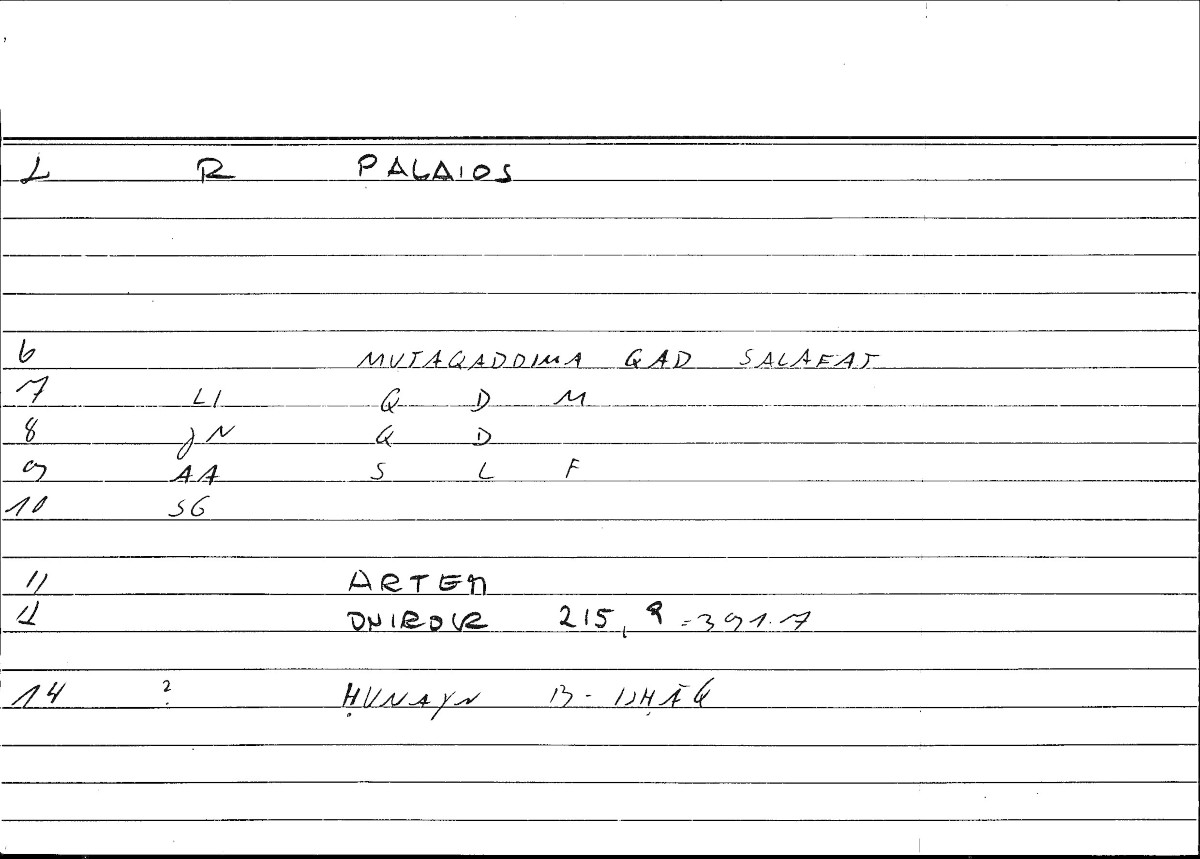 L R PALAIOS
6 MUTAQADDIMA QAD SALAFAT
7 LI Q D M
8 JN Q D
9 AA S L F
10 SG
11 ARTEM
12 ONIROCR 215, 9 = 391.7
14 ? ḤUNAYN B - ISḤĀQ